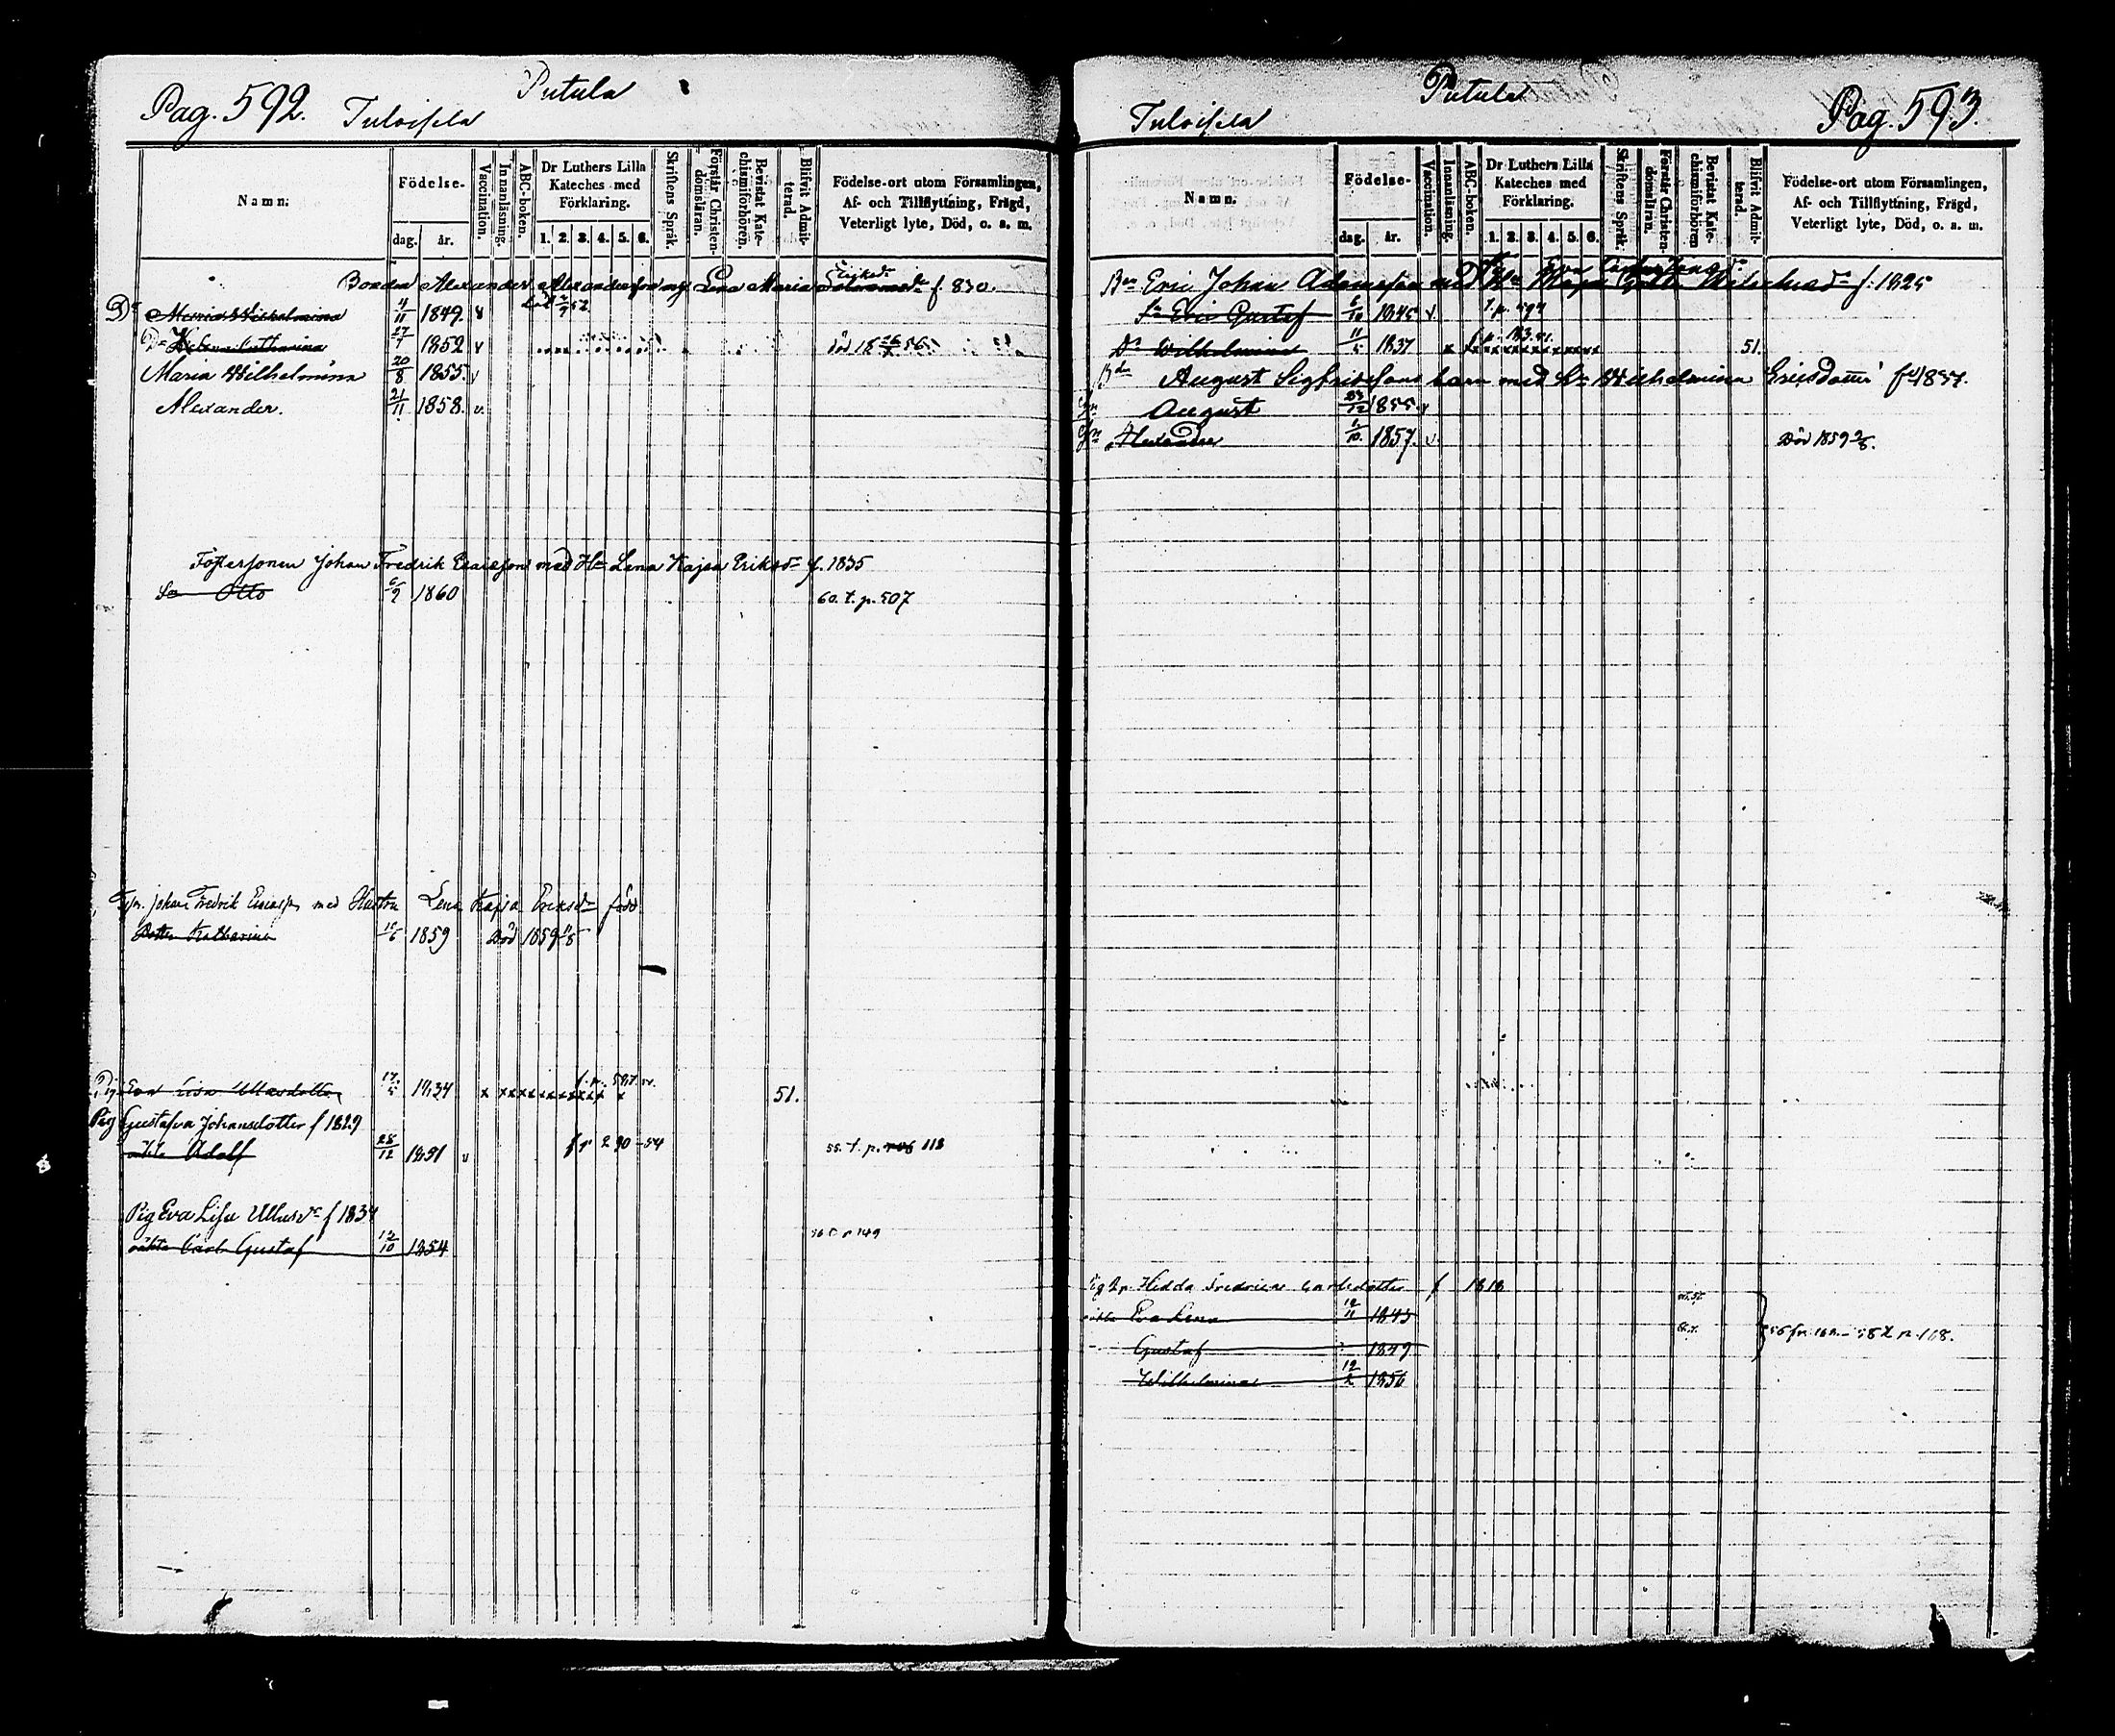 Pag. 592.
Putula
Tuloisela
Namn.
Födelse-
dag. år.
Vaccination.
Innanläsning.
ABC-boken.
Dr Luthers Lilla
Kateches med
Förklaring.
1. 2. 3. 4. 5. 6.
Skriftens Språk.
Förstår Christen-
domsläran.
Bevistat Kate-
chismiförhören.
Blifvit Admit-
terad.
Födelse-ort utom Församlingen,
Af- och Tillflyttning, Frägd,
Veterligt lyte, Död, o. s. m.
Bonden Alexander Alexandersson m Lena Maria f. 830.
Dr Maria Wilhelmina 4/11 1849. v
Dr Helena Catharina 27/7 1852 v död 18 56
Maria Wilhelmina 20/8 1855. v
Alexander. 21/11 1858. v.
Fostersonen Johan Fredrik Ericsson med H Lena Kajsa Eriksdr f. 1835
Son Otto 6/2 1860 60. t. p. 507
Johan Fredrik Ericsson med Hustru Lena Kajsa Eriksdr född
Dotter Katharina 1859 Död 1859
Pig Eva Lisa Ullasdotter 17/5 1834 x xxxxxxxxxx x f. p. 597 51.
Pig Gustafva Johansdotter f 1829
Adolf 28/12 1851 v f p 290 -54 55. t. p. 118
Pig Eva Lisa Ullasdr f 1834
oäkta Carl Gustaf 12/10 1854 149
Putula
Tuloisela
Pag. 593.
Namn.
Födelse-
dag. år.
Vaccination.
Innanläsning.
ABC-boken.
Dr Luthers Lilla
Kateches med
Förklaring.
1. 2. 3. 4. 5. 6.
Skriftens Språk.
Förstår Christen-
domsläran.
Bevistat Kate-
chismiförhören
Blifvit Admit-
terad.
Födelse-ort utom Församlingen,
Af- och Tillflyttning, Frägd,
Veterligt lyte, Död, o. s. m.
Bon Eric Johan Adamsson med f. 1825
Sn Eric Gustaf 6/10 1845 v t. p. 597
Dr Wilhelmina 11/5 1837 x xxxxxxxxxx 51.
August Sigfridsson barn med Wilhelmina Ericsdotter f 1837.
August 23/12 1855. v
Alexander 1/10. 1857. v. Död 1859
Hedda Fredrica Carlsdotter f 1818
Eva Lena 12/11 1843
Gustaf 1849
Wilhelmina 12/2 1856